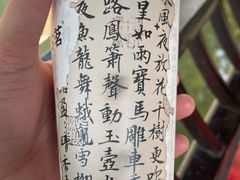 風夜放花千樹更吹
星如雨寶馬雕車
路鳳簫聲動玉壺
夜魚龍舞蛾兒雪柳
盈暗香